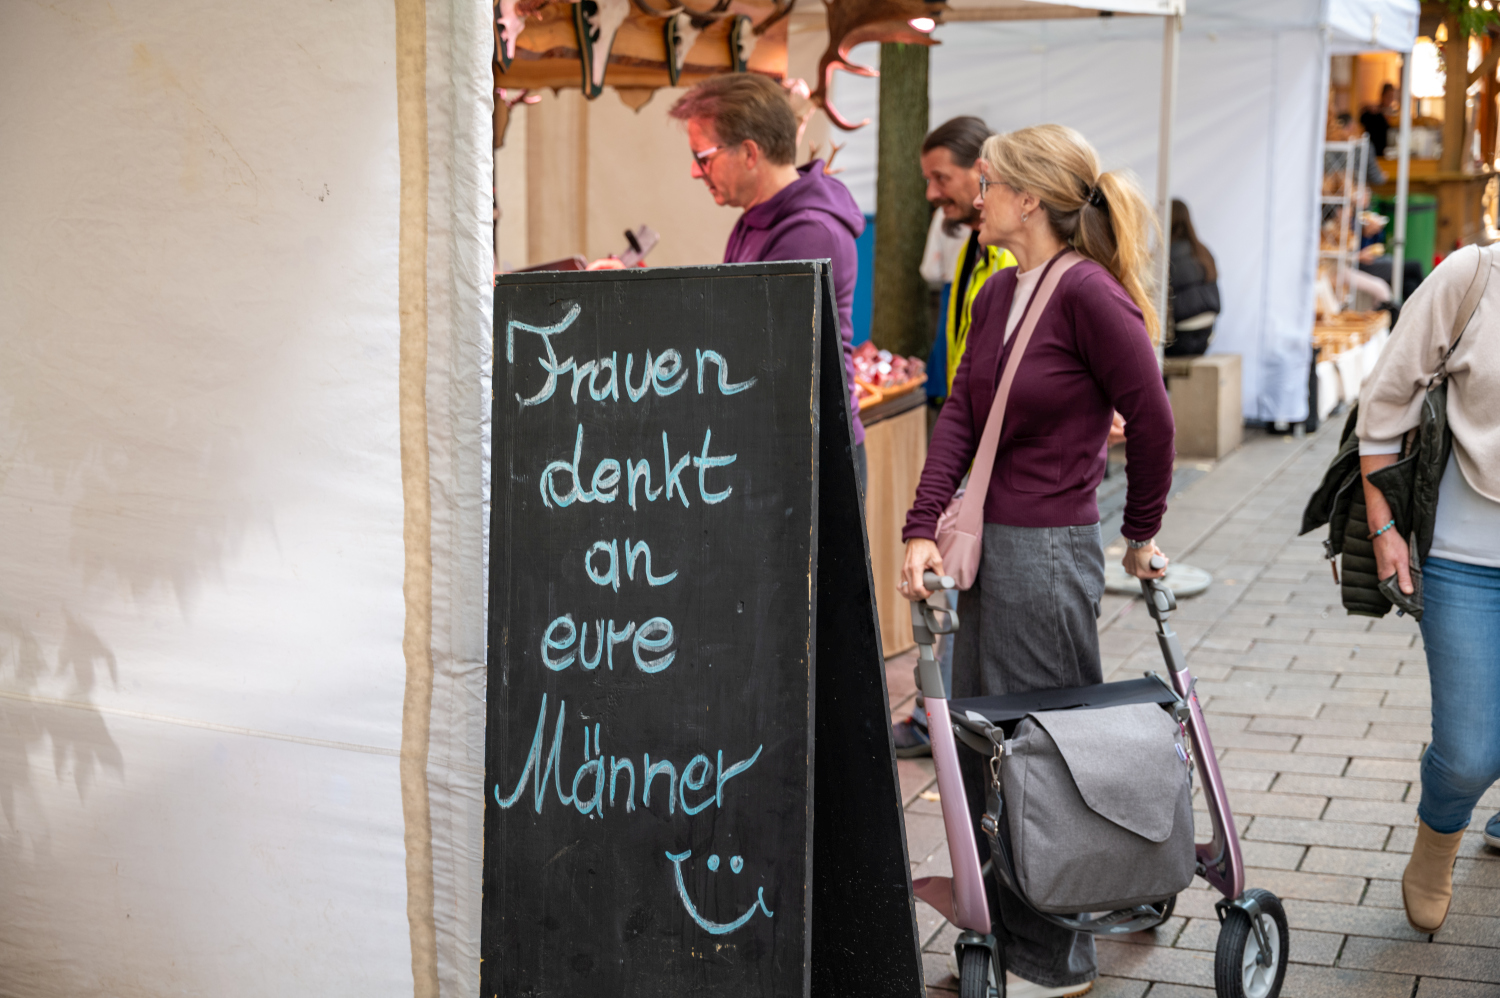 Frauen
denkt
an
eure
Männer